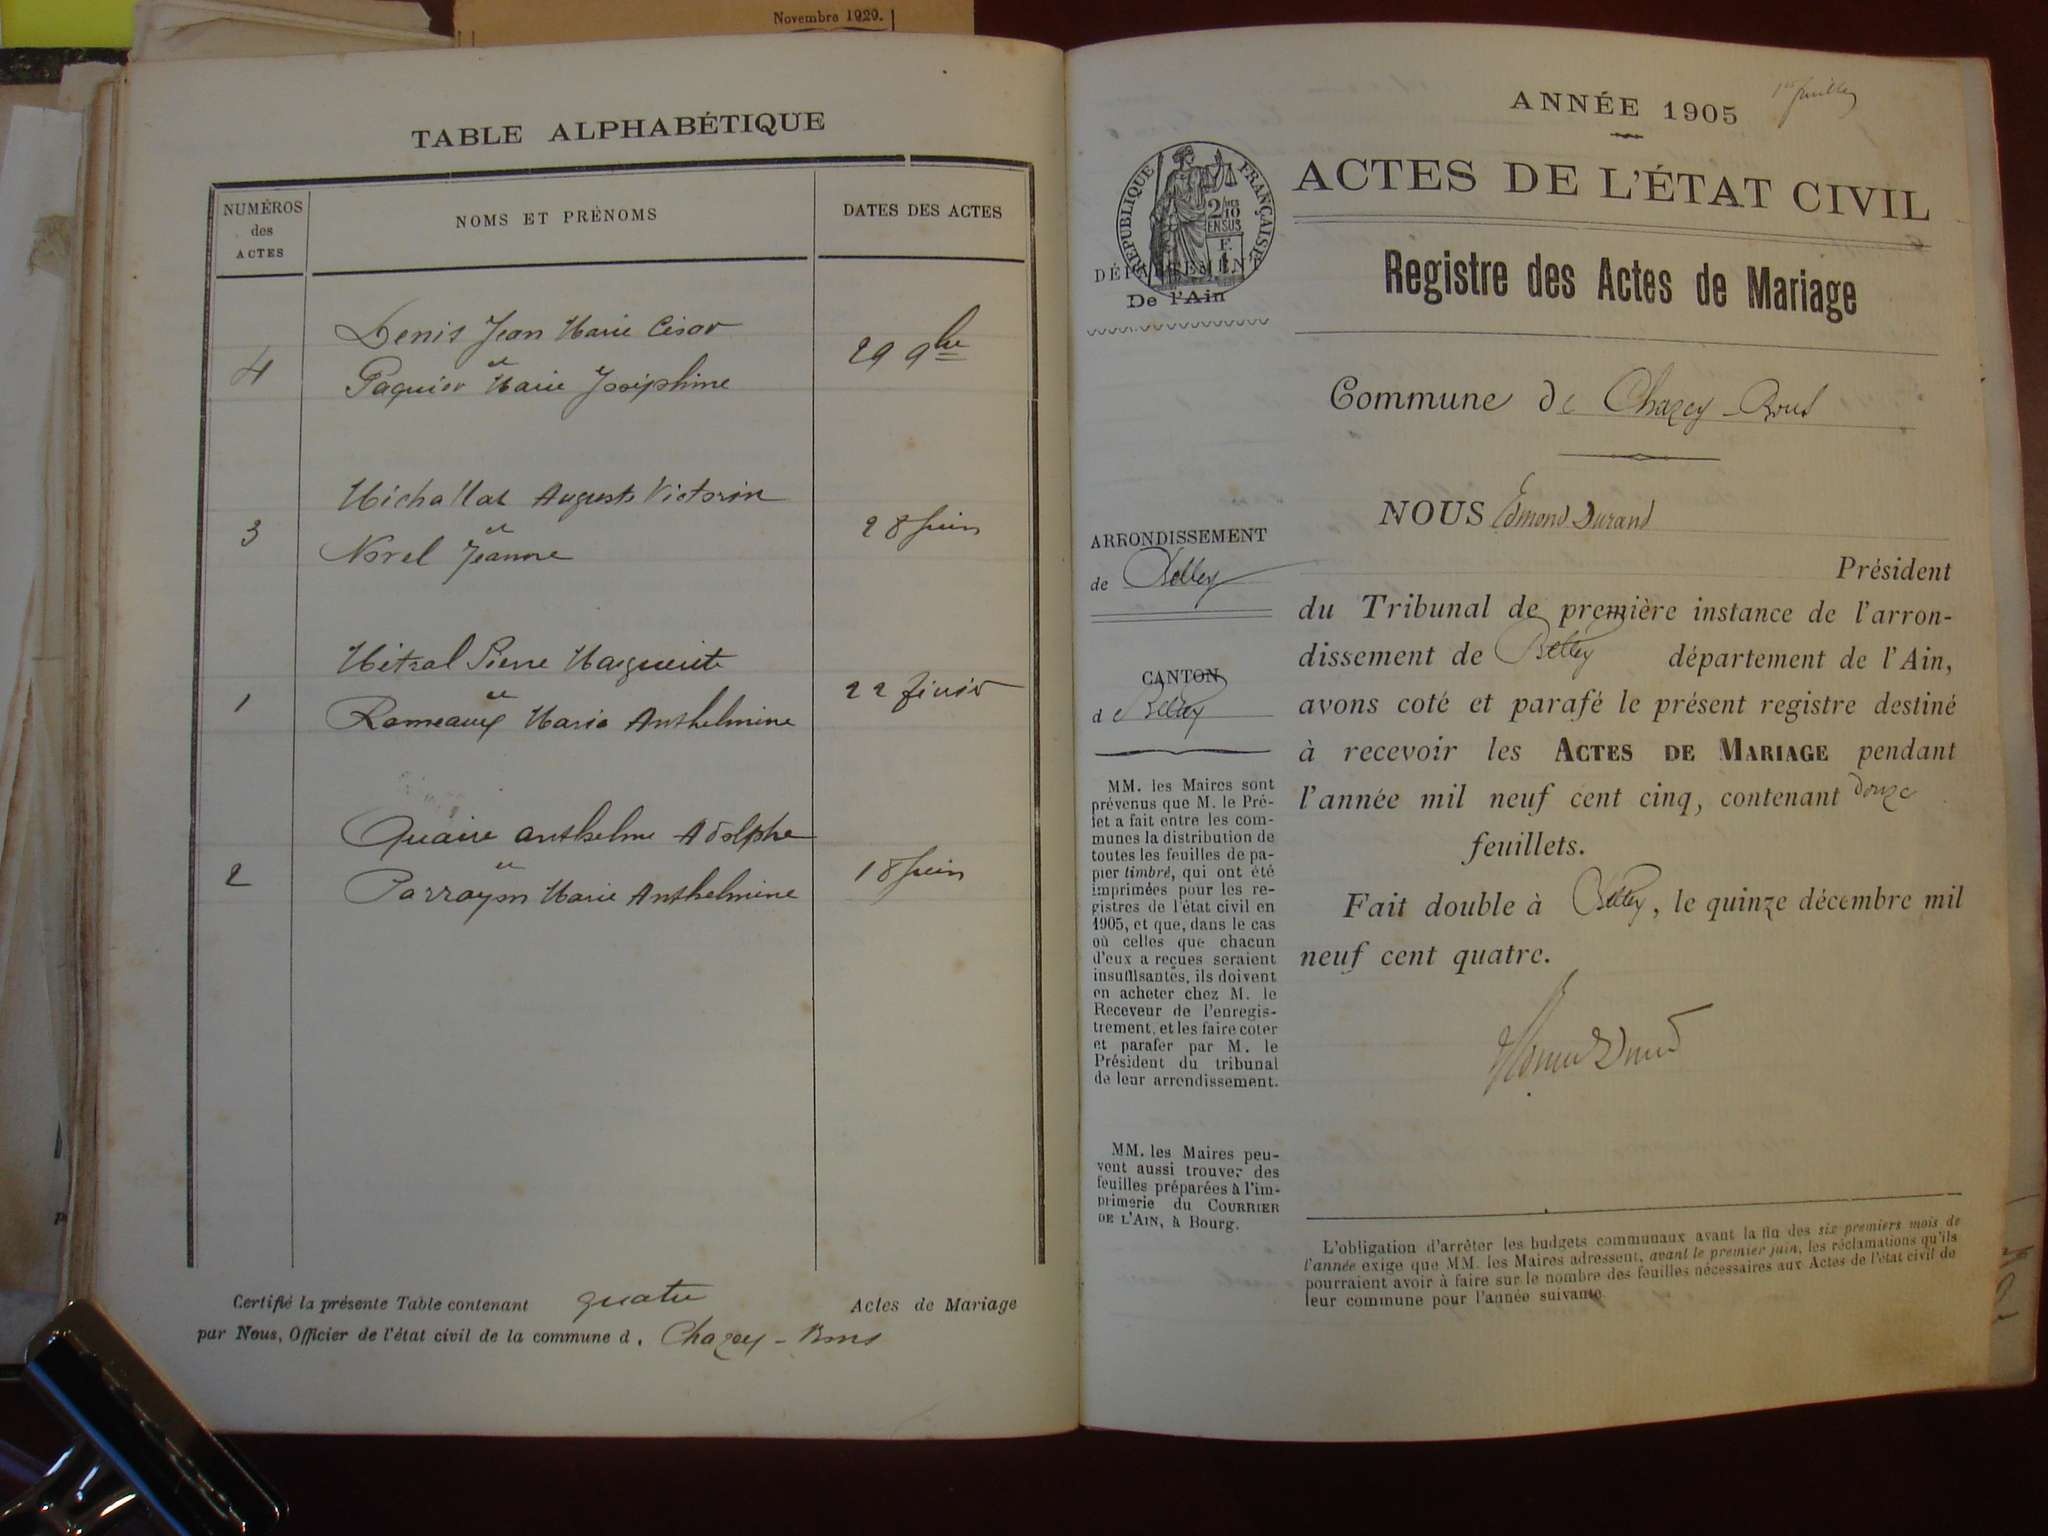 Novembre 1929.
TABLE ALPHABÉTIQUE
NUMÉROS
des
ACTES
NOMS ET PRÉNOMS
DATES DES ACTES
Denis Jean Marie César
et
4
Paquier Marie Joséphine
29 9bre
Michallat Auguste Victorin
et
3
Norel Jeanne
28 Juin
Métral Pierre Marguerite
et
1
Rameaux Marie Anthelmine
22 février
Quaire Anthelme Adolphe
et
2
Parrayon Marie Anthelmine
18 Juin
Certifié la présente Table contenant quatre Actes de Mariage
par Nous, Officier de l'état civil de la commune d. Chazey-Bons
1er feuillet
ANNÉE 1905
ACTES DE L'ÉTAT CIVIL
RÉPUBLIQUE FRANÇAISE
2/10
EN SUS
F.
1
DÉPARTEMENT
De l'Ain
Registre des Actes de Mariage
Commune de Chazey-Bons
ARRONDISSEMENT
de Belley
CANTON
de Belley
MM. les Maires sont
prévenus que M. le Pré-
fet a fait entre les com-
munes la distribution de
toutes les feuilles de pa-
pier timbré, qui ont été
imprimées pour les re-
gistres de l'état civil en
1905, et que, dans le cas
où celles que chacun
d'eux a reçues seraient
insuffisantes, ils doivent
en acheter chez M. le
Receveur de l'enregis-
trement, et les faire coter
et parafer par M. le
Président du tribunal
de leur arrondissement.
MM. les Maires peu-
vent aussi trouver des
feuilles préparées à l'im-
primerie du COURRIER
DE L'AIN, à Bourg.
NOUS Edmond Durand
Président
du Tribunal de première instance de l'arron-
dissement de Belley département de l'Ain,
avons coté et parafé le présent registre destiné
à recevoir les ACTES DE MARIAGE pendant
l'année mil neuf cent cinq, contenant douze
feuillets.
Fait double à Belley, le quinze décembre mil
neuf cent quatre.
Edmond Durand
L'obligation d'arrêter les budgets communaux avant la fin des six premiers mois de
l'année exige que MM. les Maires adressent, avant le premier juin, les réclamations qu'ils
pourraient avoir à faire sur le nombre des feuilles nécessaires aux Actes de l'état civil de
leur commune pour l'année suivante.